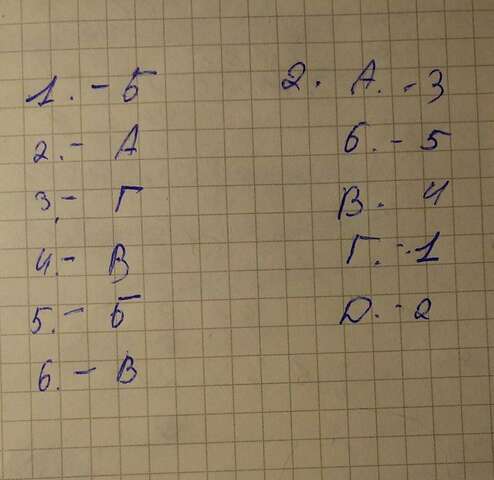 1. - Б
2. - А
3. - Г
4. - В
5. - Б
6. - В
2. А. - 3
Б. - 5
В. 4
Г. - 1
Д. - 2